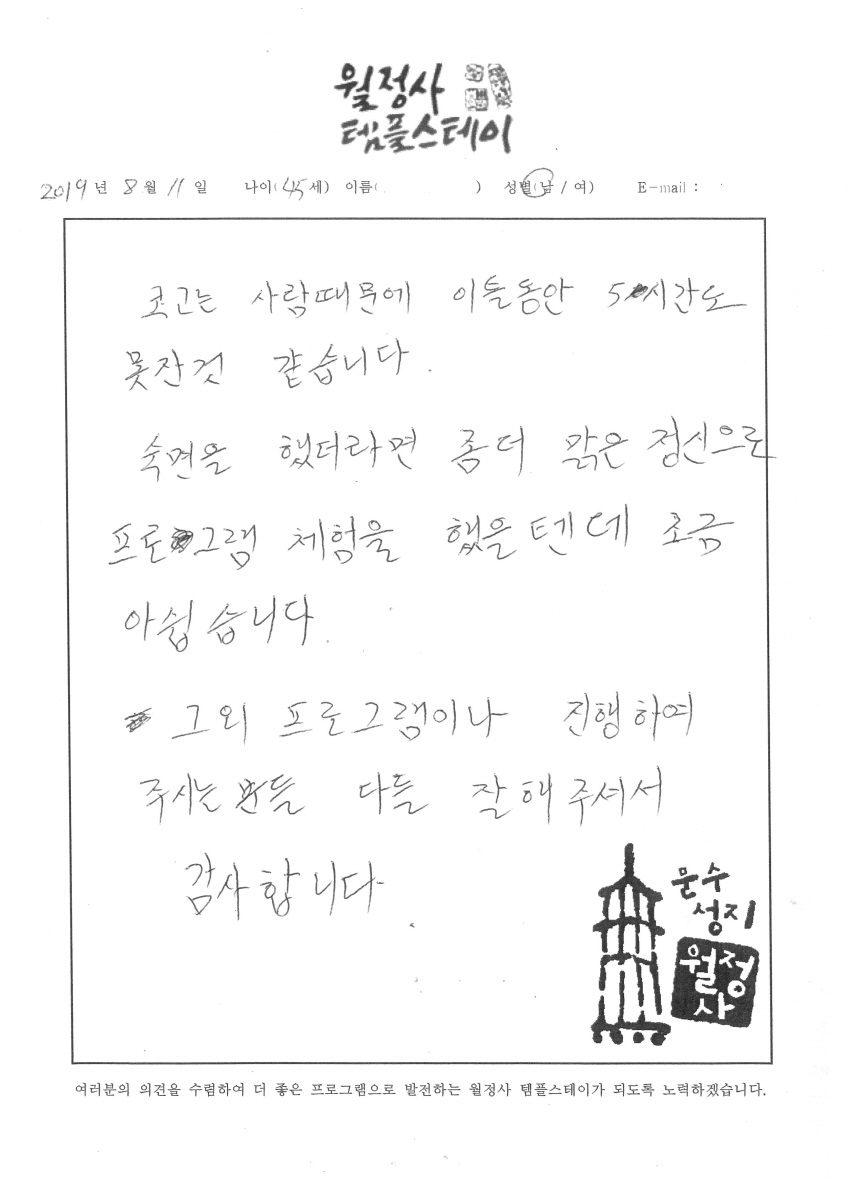 월정사
템플스테이
2019년 8월 11일 나이(45세) 이름( ) 성별(남 / 여) E-mail :
코고는 사람때문에 이틀동안 5시간도
못잔것 같습니다.
숙면을 했더라면 좀더 맑은 정신으로
프로그램 체험을 했을텐데 조금
아쉽습니다.
그외 프로그램이나 진행하여
주시는 분들 다들 잘해주셔서
감사합니다
문수
성지
월정
사
여러분의 의견을 수렴하여 더 좋은 프로그램으로 발전하는 월정사 템플스테이가 되도록 노력하겠습니다.